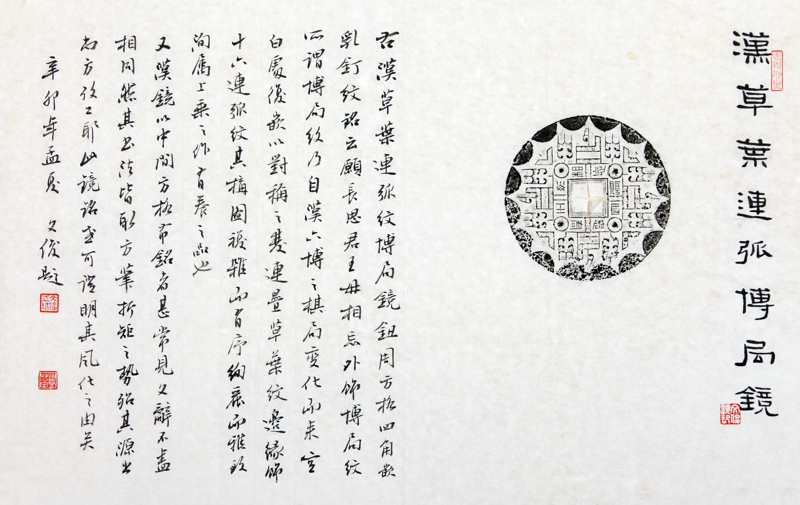 漢草葉連弧博局鏡
右漢草葉連弧紋博局鏡鈕周方格四角嵌
乳釘紋銘云願長思君王毋相忘外飾博局紋
所謂博局紋乃自漢六博之棋局變化而來空
白處復嵌以對稱之雙連疊草葉紋邊緣飾
十六連弧紋其構圖複雜而有序絢麗而雅致
洵屬上乘之作有養之品也
又漢鏡以中間方格布銘者甚常見文辭不盡
相同然其書法皆取方筆折矩之勢殆其源出
尚方倕工耶此鏡銘或可證明其風化之由矣
辛卯年孟夏 文俊題